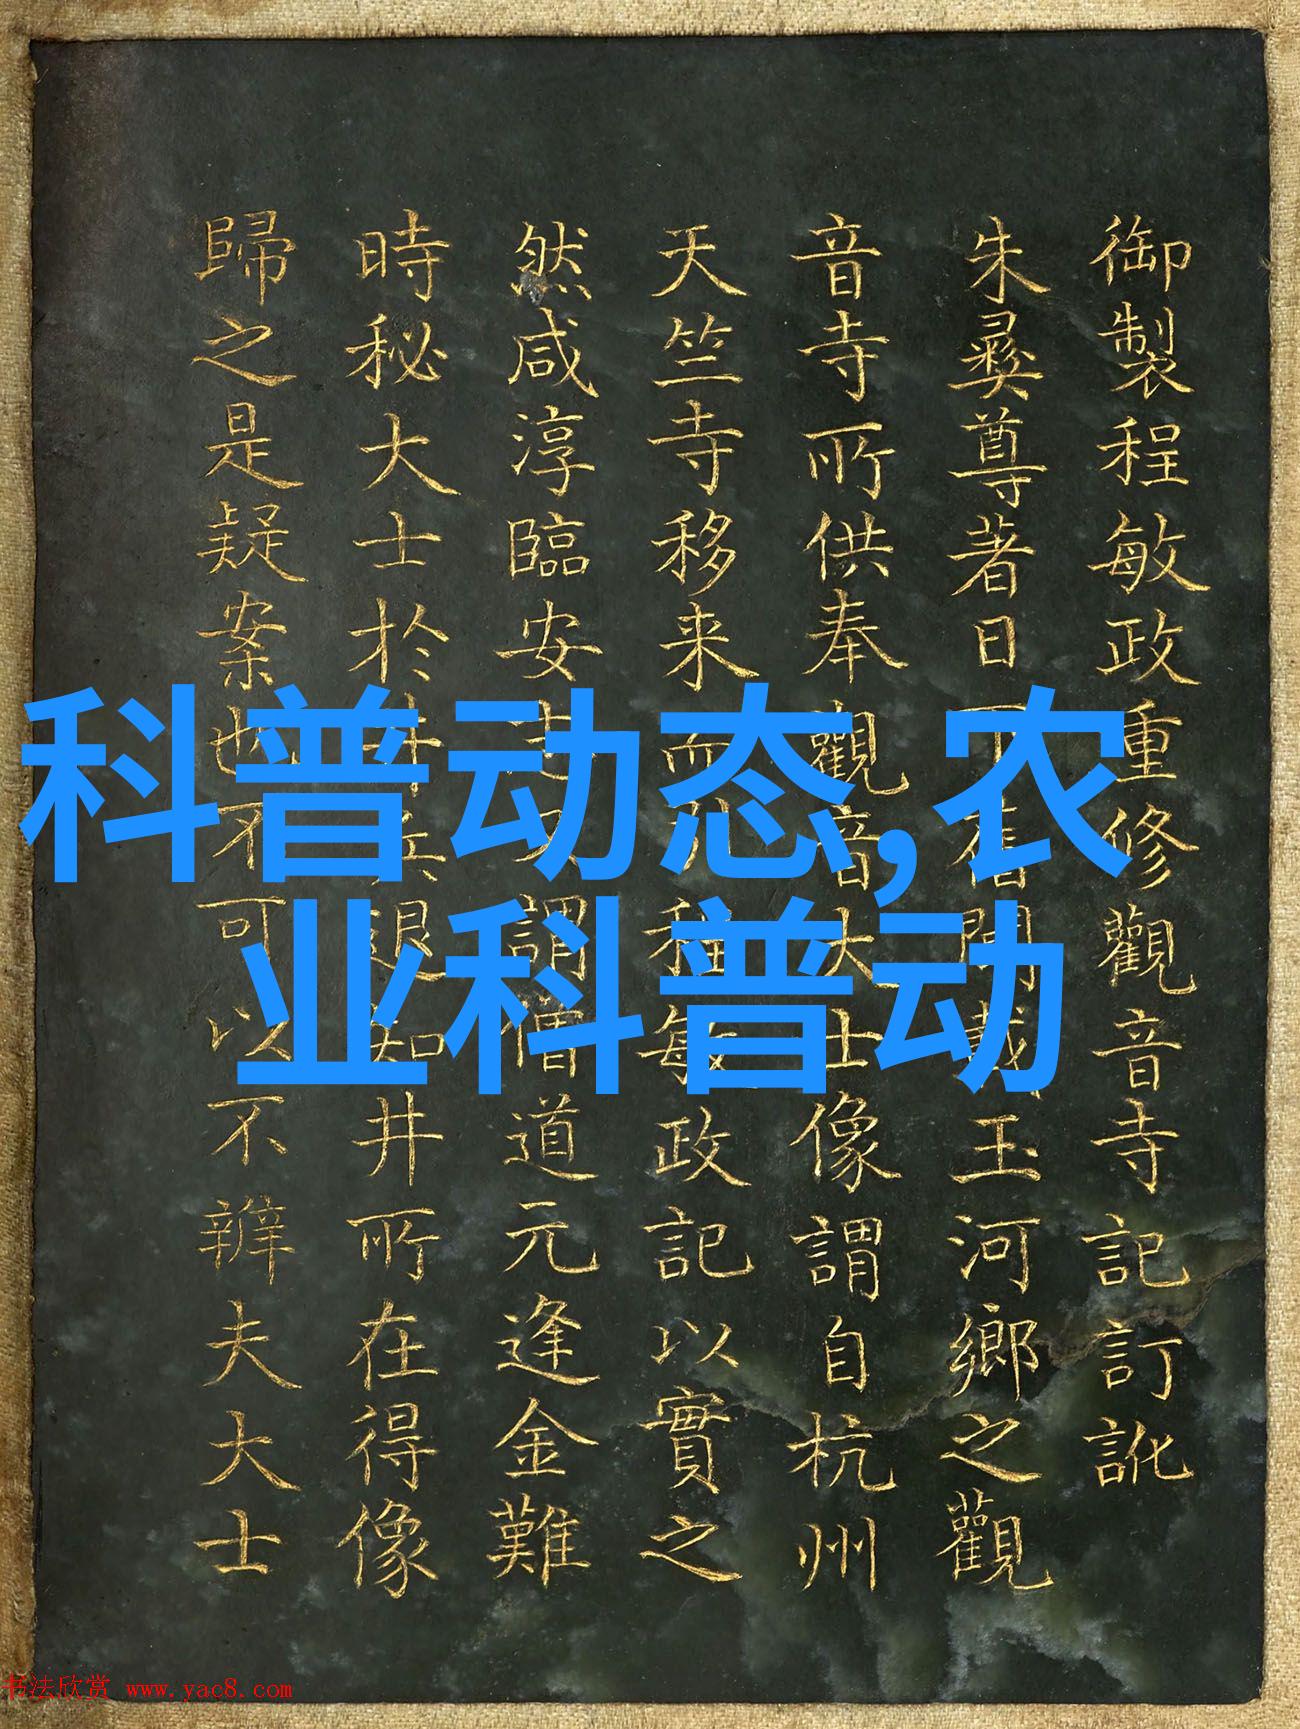 御製程敏政重修觀音寺記訂訛
朱彝尊著日下舊聞載玉河鄉之觀
音寺所供奉觀音大士像謂自杭州
天竺寺移来而引程敏政記以實之
然咸淳臨安志又謂僧道元逢金難
時秘大士於井兵退知井所在得像
歸之是疑案也不可以不辨夫大士
科普动态,农
业科普动
书法欣赏 www.yac8.com